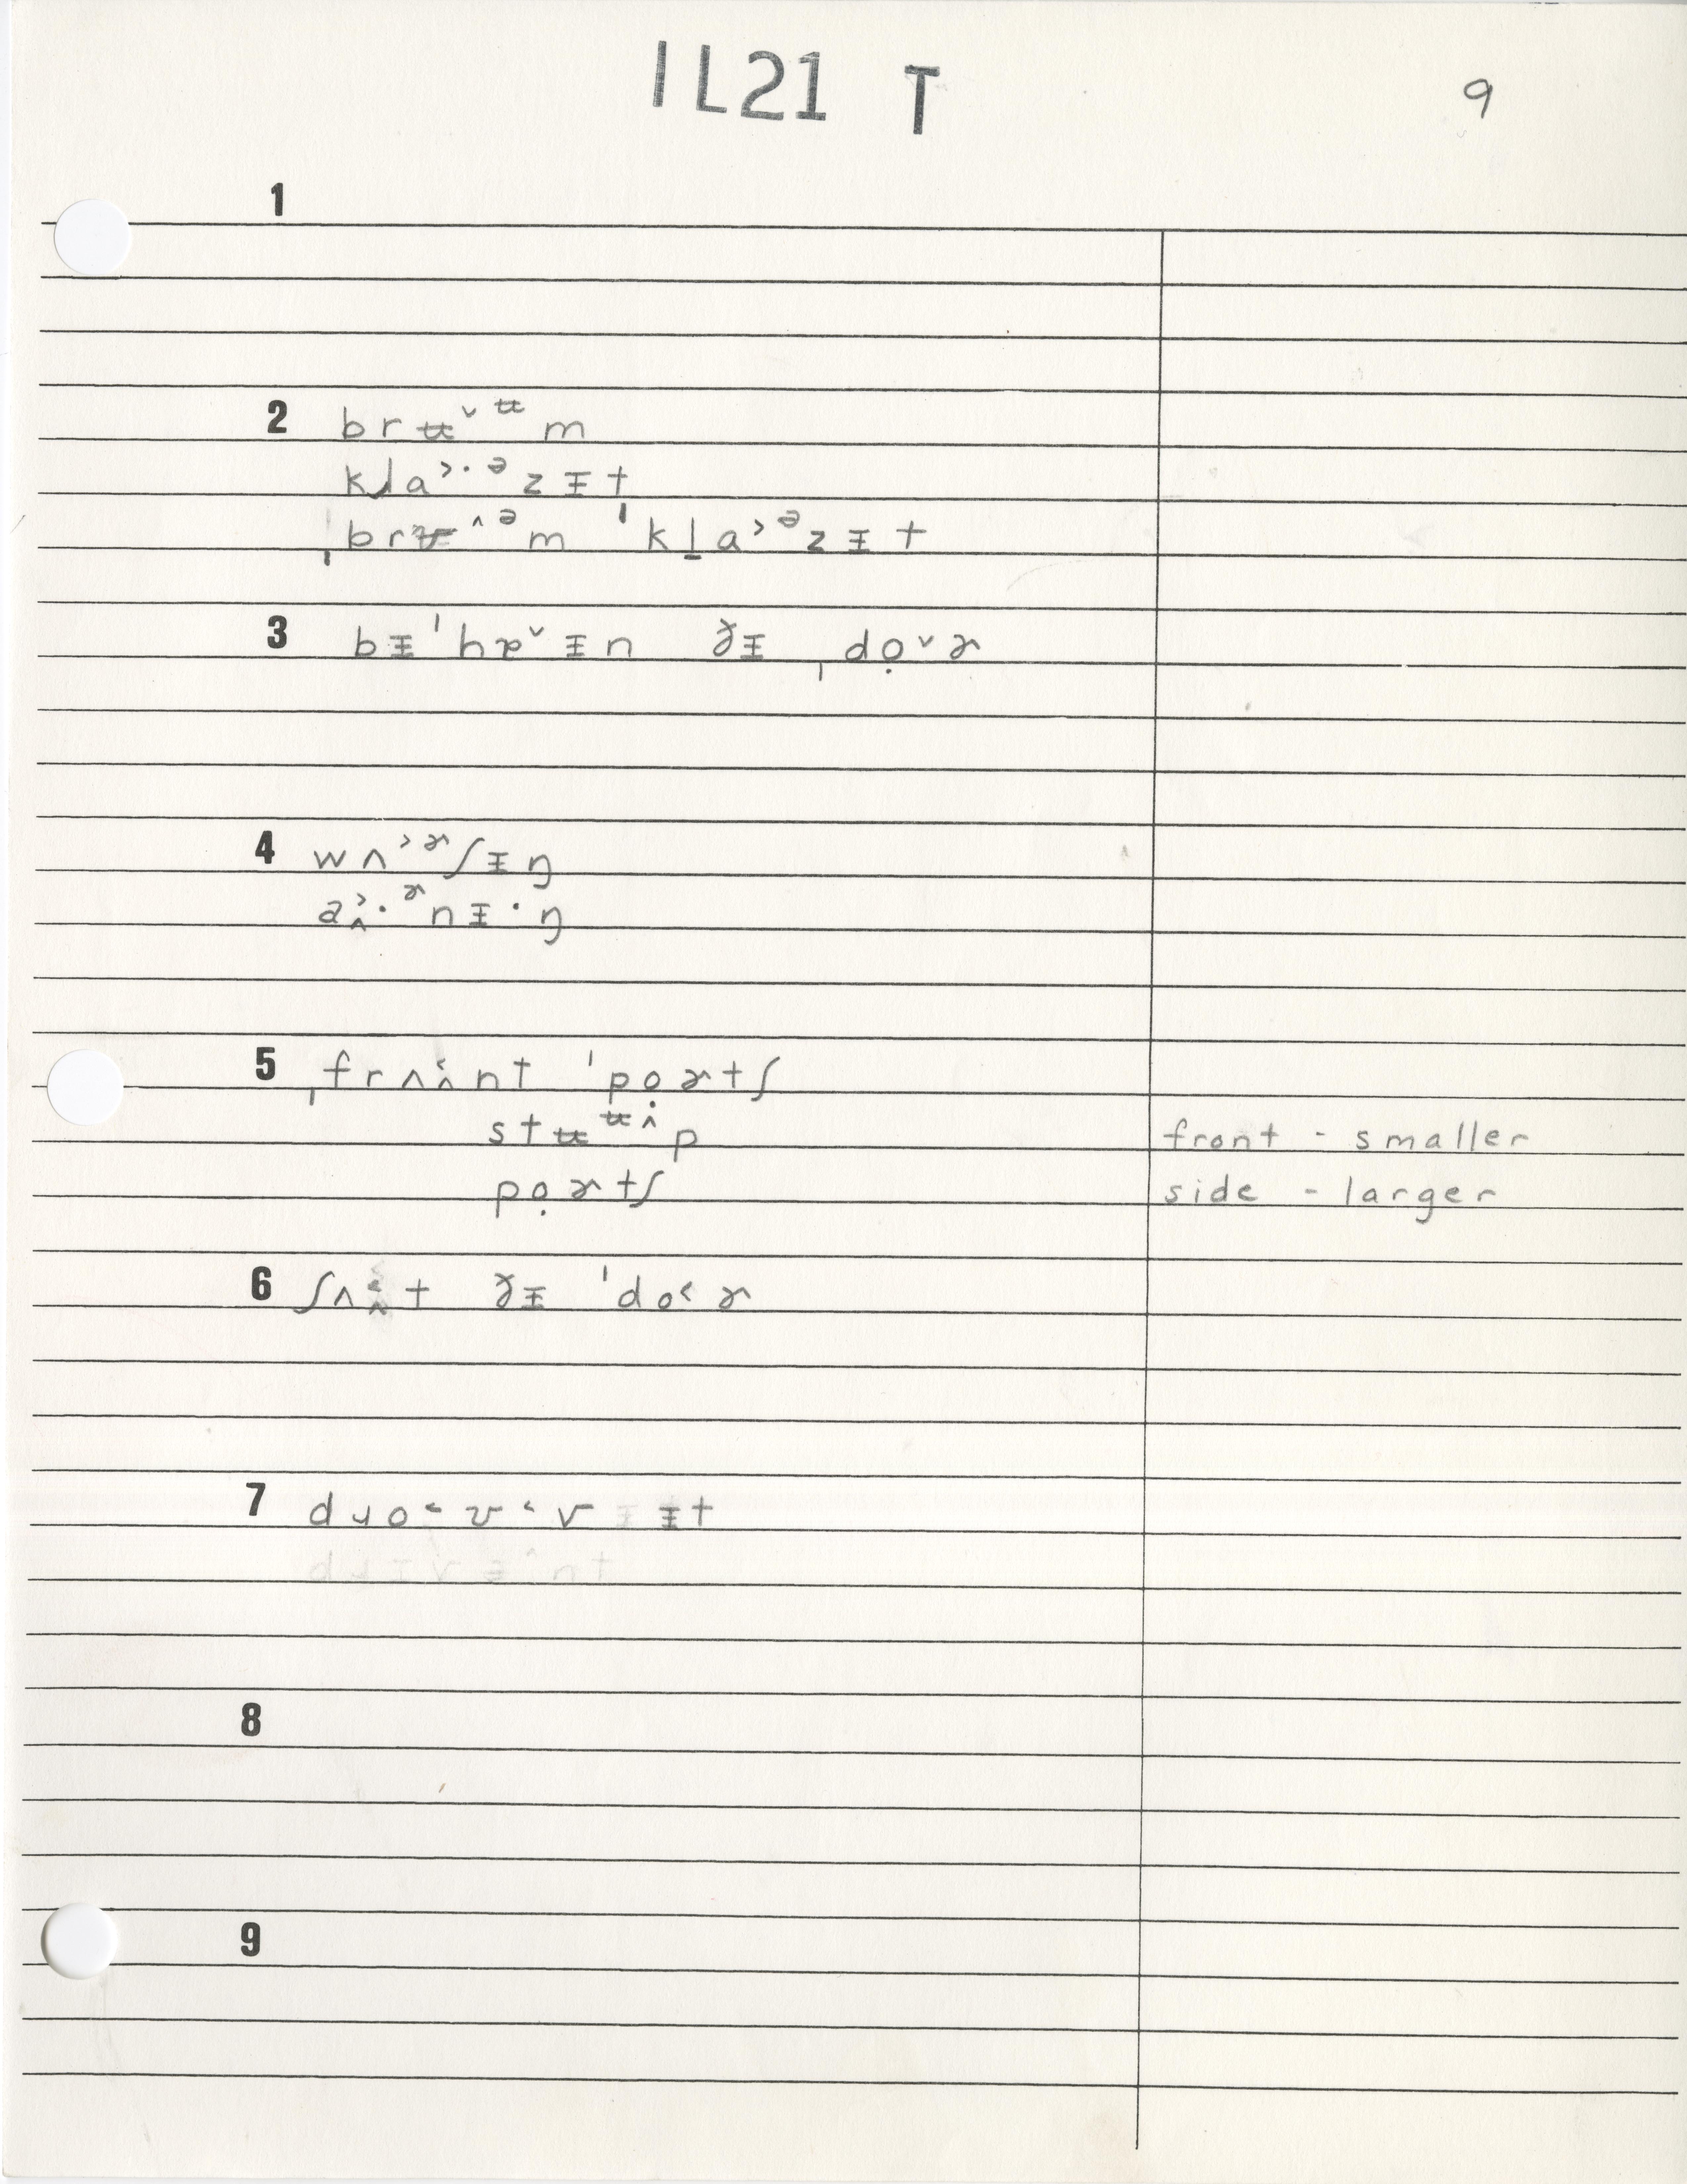 IL21 T
9
1
2 brʉ˅ʉm
kɭa˃·ᵊzɪt
ˌbrʉ˄ᵊm ˈkl̠a˃ᵊzɪt
3 bɪˈhæ˅ɪn ðɪ ˌdọ˅ɚ
4 wʌ˃ɚʃɪŋ
a˄˃·ɚnɪ·ŋ
5 ˌfrʌ˄˂nt ˈpọɚtʃ
stʉʉ˄p
front - smaller
pọɚtʃ
side - larger
6 ʃʌ˂˄t ðɪ ˈdo˂ɚ
7 dɹo˂ʊ˂v ɪt
8
9